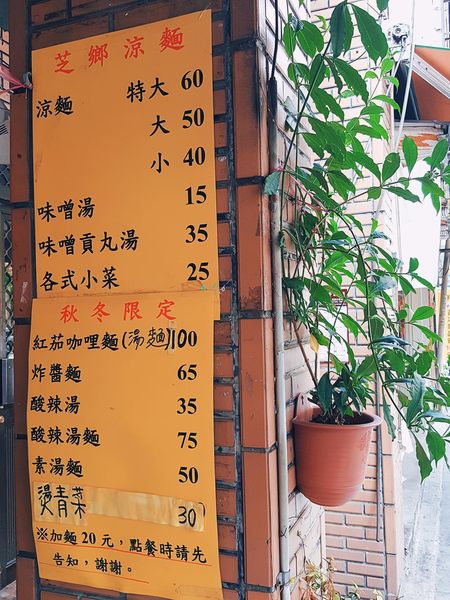 芝鄉涼麵
涼麵 特大 60
大 50
小 40
味噌湯 15
味噌貢丸湯 35
各式小菜 25
秋冬限定
紅茄咖哩麵(湯麵)100
炸醬麵 65
酸辣湯 35
酸辣湯麵 75
素湯麵 50
燙青菜 30
※加麵20元，點餐時請先
告知，謝謝。